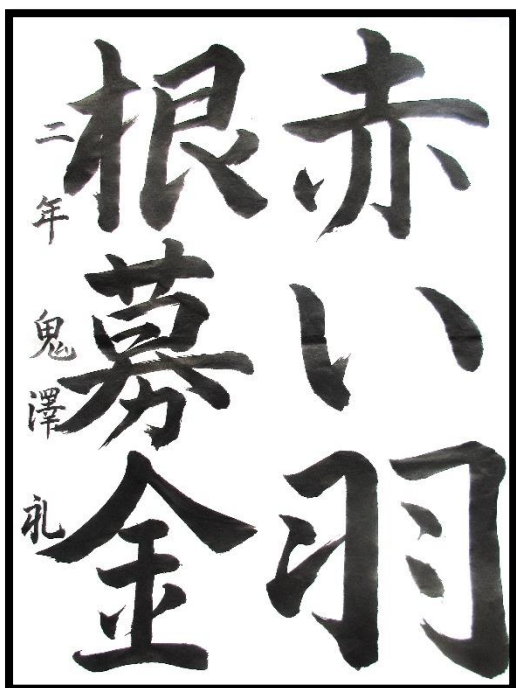 赤い羽
根募金
二年 鬼澤 礼